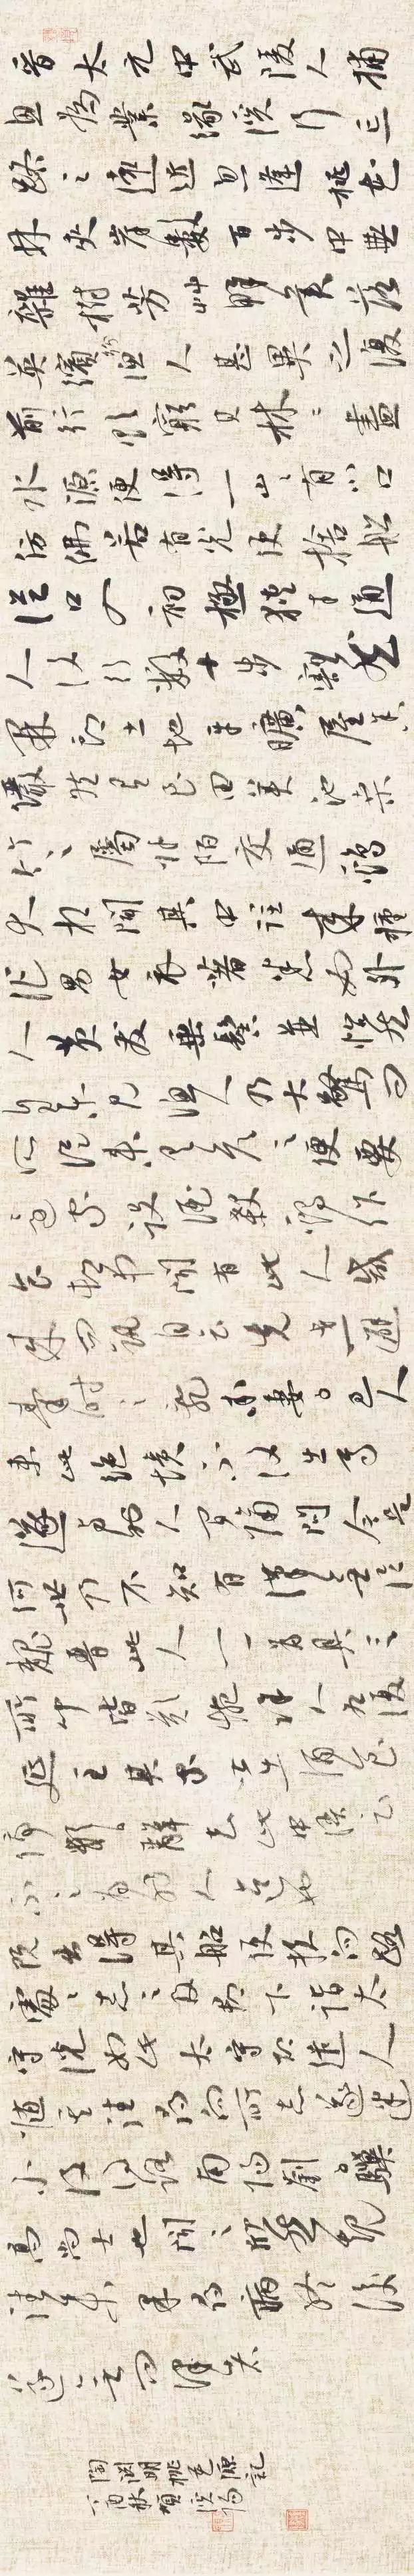 晉太元中武陵人捕
魚為業緣溪行忘
路之遠近忽逢桃花
林夾岸數百步中無
雜樹芳草鮮美落
英繽紛漁人甚異之復
前行欲窮其林林盡
水源便得一山山有小口
彷彿若有光便捨船
從口入初極狹才通
人復行數十步豁然
開朗土地平曠屋舍
儼然有良田美池桑
竹之屬阡陌交通鷄
犬相聞其中往來種
作男女衣著悉如外
人黃髮垂髫並怡然
自樂見漁人乃大驚問
所從來具答之便要
還家設酒殺鷄作
食村中聞有此人咸
來問訊自云先世避
秦時之亂率妻子邑人
來此絕境不復出焉
遂與外人間隔問今是
何世乃不知有漢無論
魏晉此人一一為具言
所聞皆歎惋餘人各復
延至其家皆出酒食
停數日辭去此中語云
不足為外人道也
既出得其船便扶向路
處處誌之及郡下詣太
守說如此太守即遣人
隨其往尋向所誌遂迷
不復得路南陽劉子驥
高尚士也聞之欣然規
往未果尋病終後
遂無問津者
陶淵明桃花源記